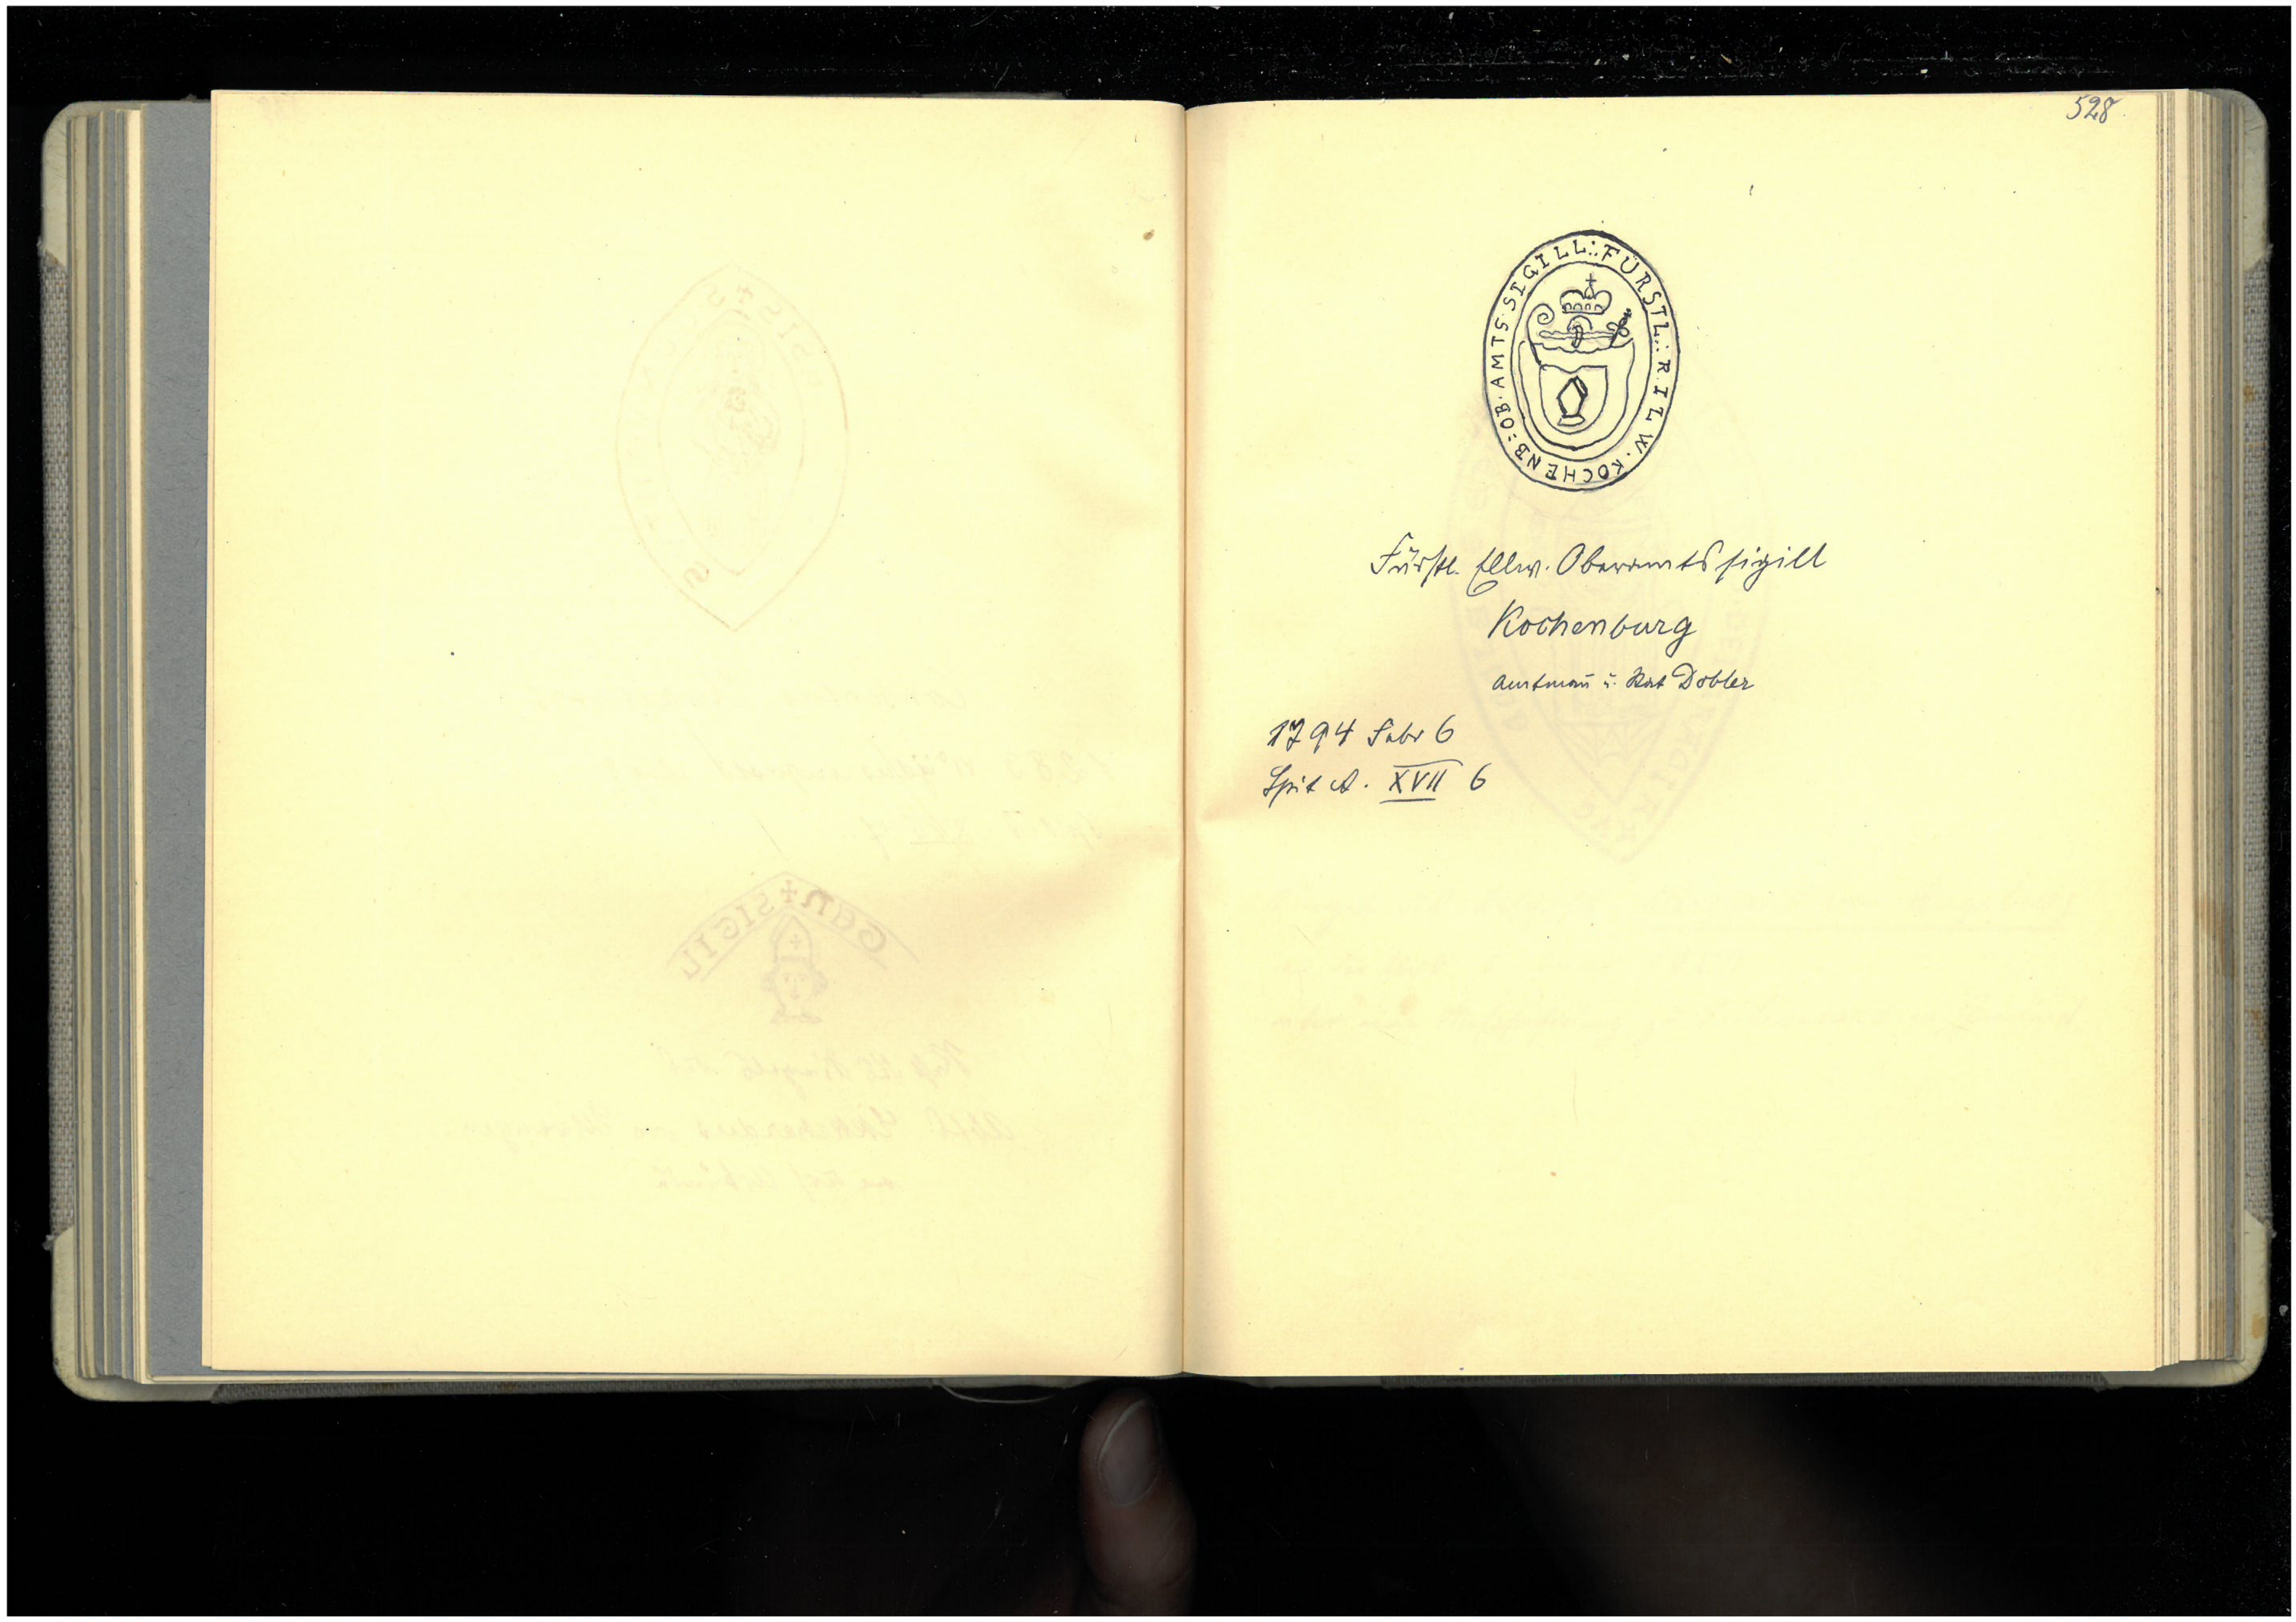 528
FÜRSTL: R I L W. KOCHENB: OB. AMTS SIGILL:
Fürstl. Ellw. Oberamtssigill
Kochenburg
Amtman u. Rat Dobler
1794 Febr 6
Spit A. XVII 6